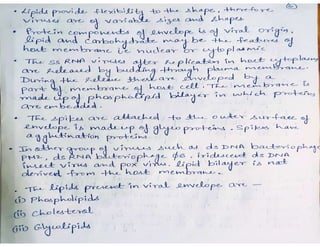 • Lipids provide flexibility to the shape, therefore
viruses are of variable sizes and shapes
• Protein components of envelope is of viral origin,
lipid and carbohydrate may be the features of
host membrane ie nuclear or cytoplasmic
• The ss RNA viruses after replication in host cytoplasm
are released by budding through plasma membrane.
During the release these are enveloped by a
part of membrane of host cell. The membrane is
made up of phospholipid bilayer in which proteins
are embedded.
• The spikes are attached to the outer surface of
envelope is made up of glycoproteins. Spikes have
agglutination proteins
• In other group of viruses such as ds DNA bacteriophage
PM2, ds RNA bacteriophage φ6, iridescent ds DNA
insect virus and pox virus. lipid bilayer is not
derived from the host membrane.
• The lipids present in viral envelope are —
(i) Phospholipids
(ii) Cholesterol
(iii) Glycolipids